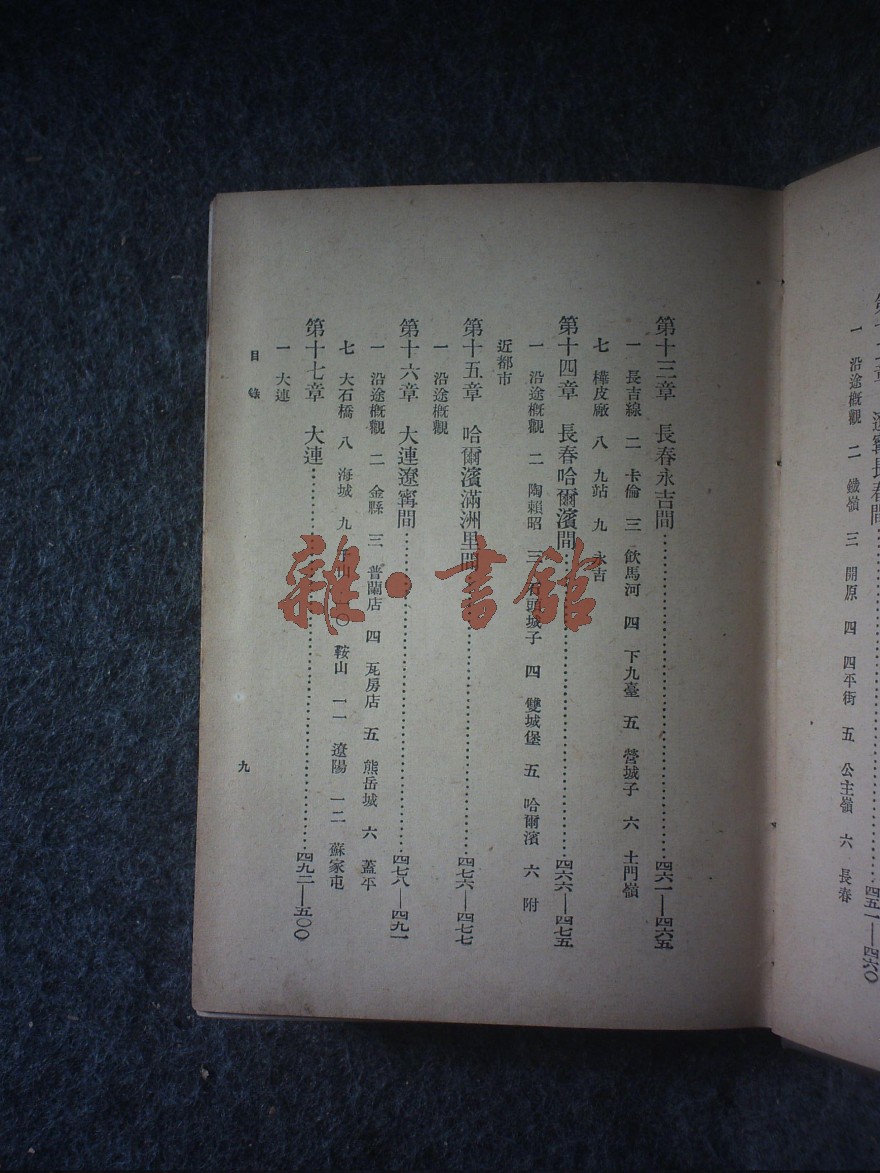 遼寧長春間……四五一—四六〇
一 沿途概觀 二 鐵嶺 三 開原 四 四平街 五 公主嶺 六 長春
第十三章 長春永吉間……四六一—四六五
一 長吉線 二 卡倫 三 飲馬河 四 下九臺 五 營城子 六 土門嶺
七 樺皮廠 八 九站 九 永吉
第十四章 長春哈爾濱間……四六六—四七五
一 沿途概觀 二 陶賴昭 三 石頭城子 四 雙城堡 五 哈爾濱 六 附
近都市
第十五章 哈爾濱滿洲里間……四七六—四七七
一 沿途概觀
第十六章 大連遼寗間……四七八—四九一
一 沿途概觀 二 金縣 三 普蘭店 四 瓦房店 五 熊岳城 六 蓋平
七 大石橋 八 海城 九 千山 一〇 鞍山 一一 遼陽 一二 蘇家屯
第十七章 大連……四九二—五〇〇
一 大連
目錄
九
雜·書館